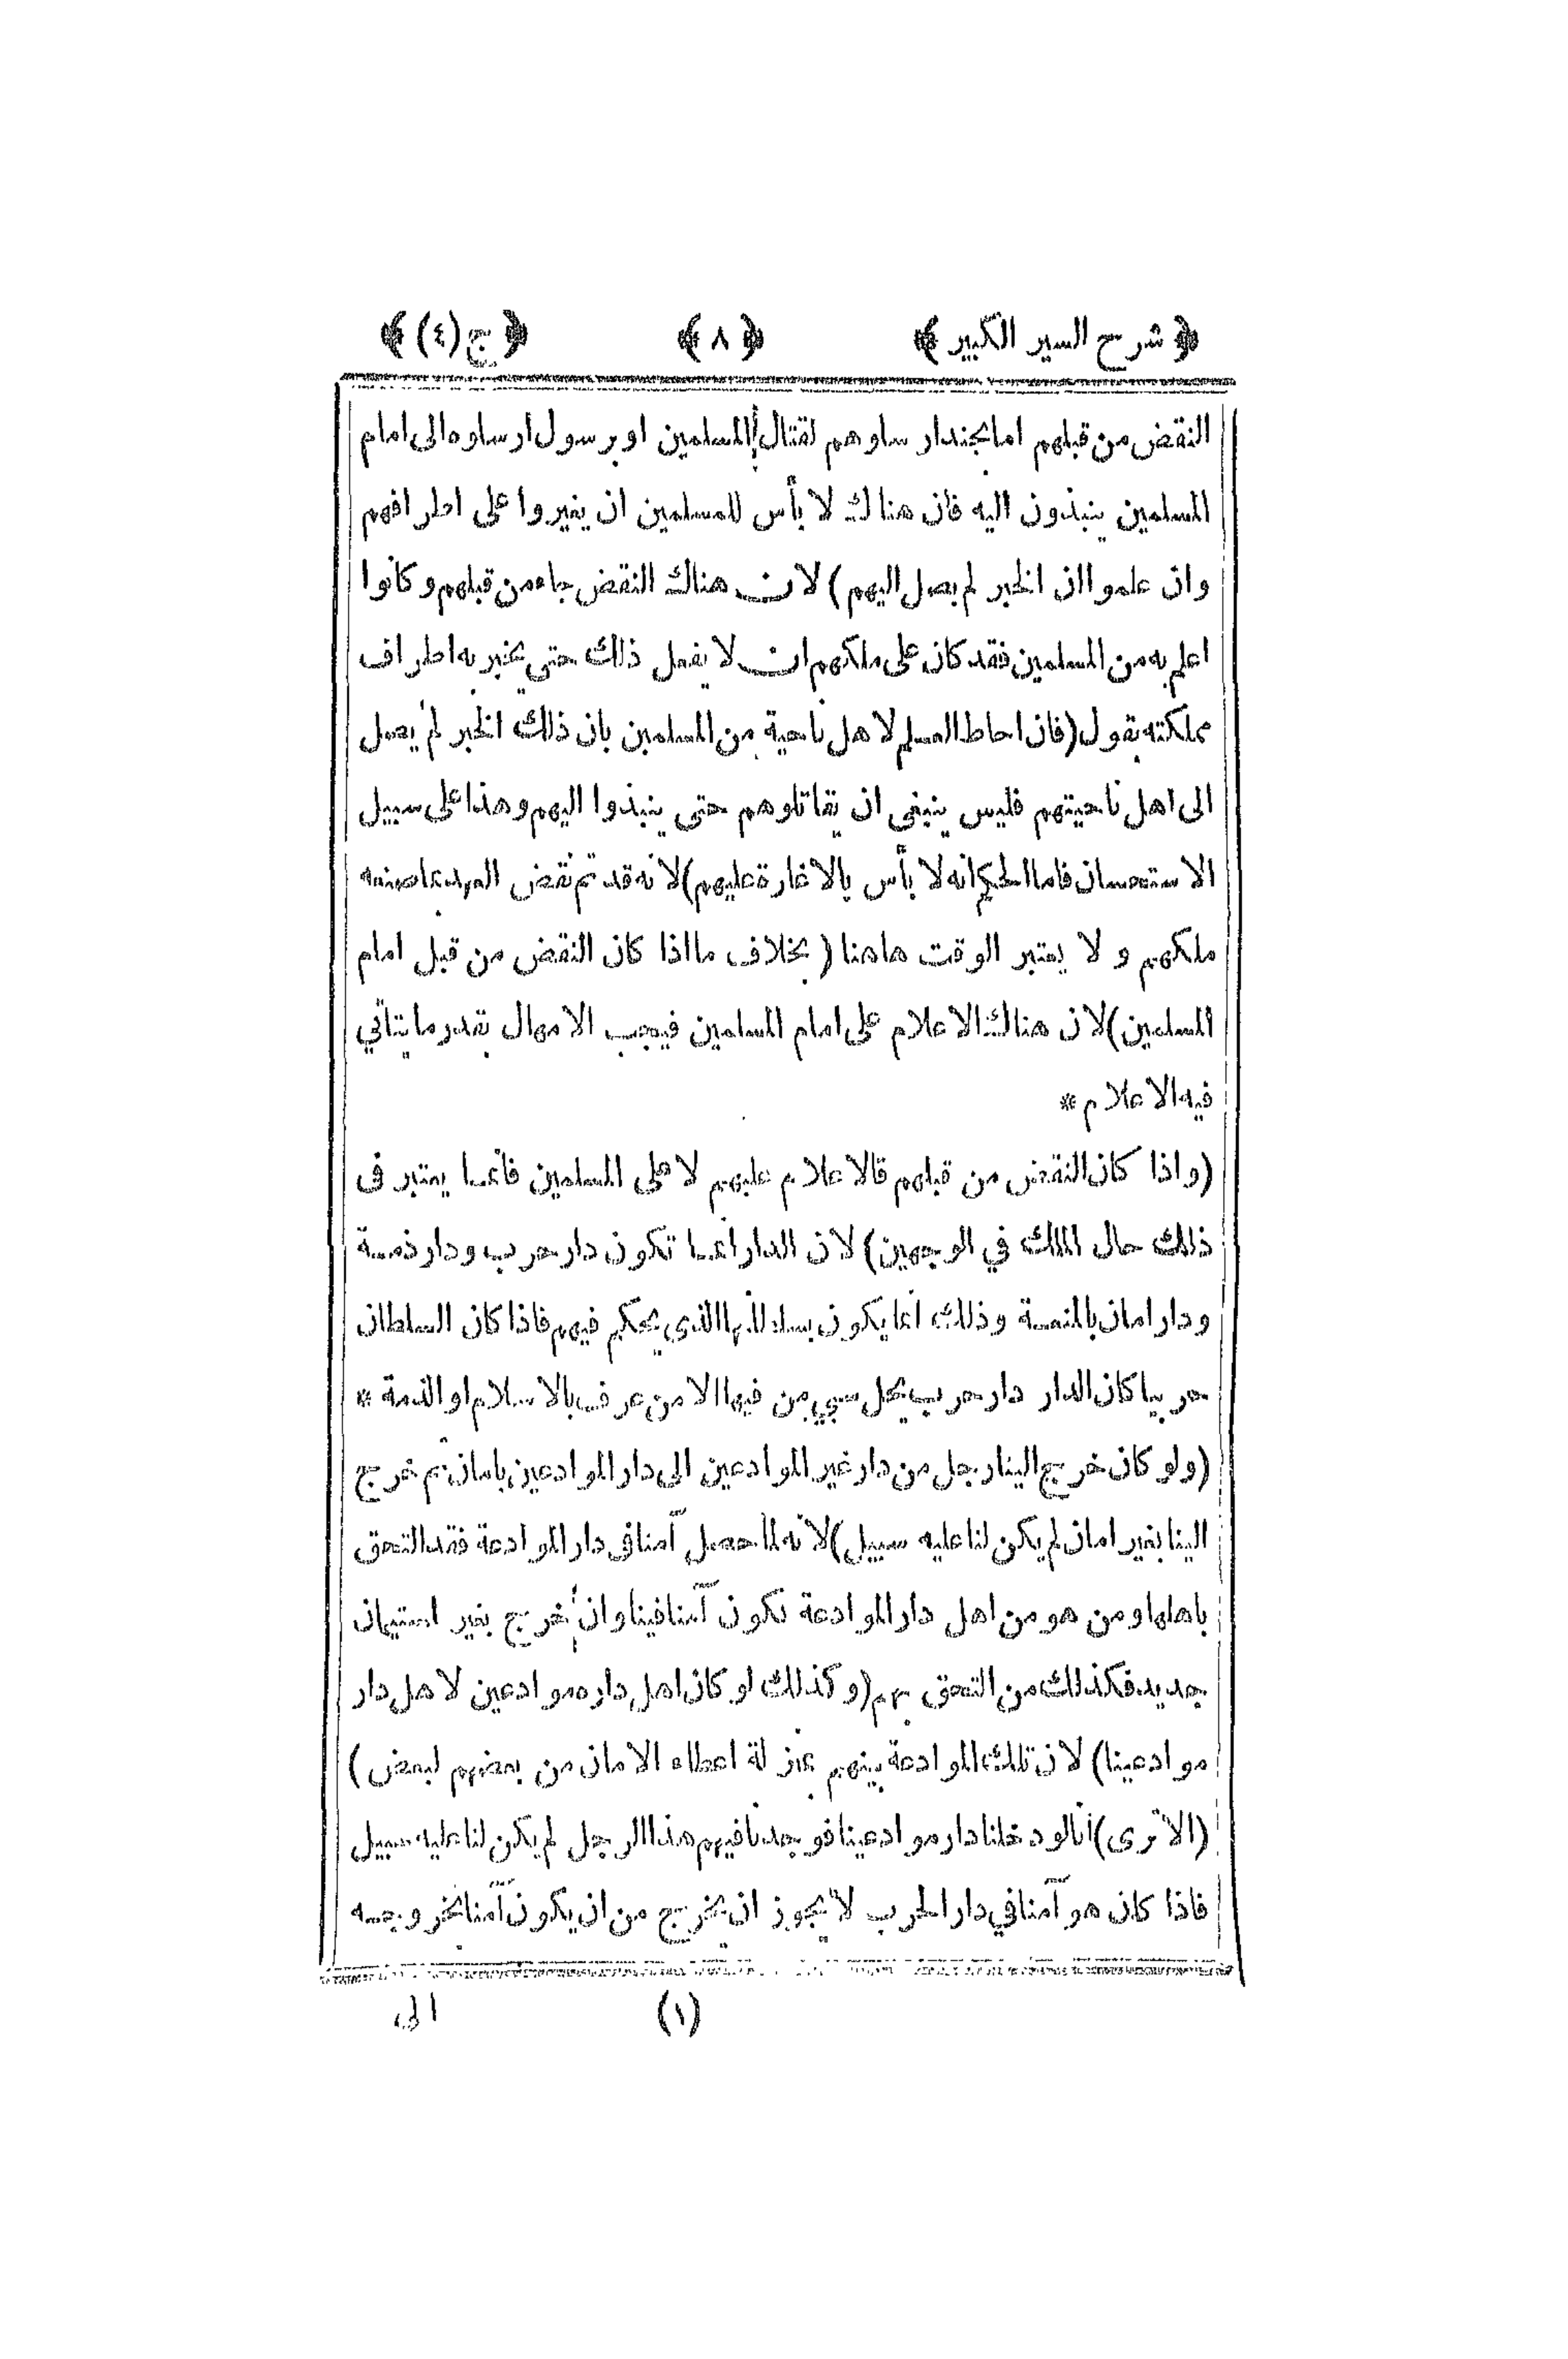 ﴿ شرح السير الكبير ﴾ ﴿ ٨ ﴾ ﴿ ج (٤) ﴾
النقض من قبلهم اما بجند ارسلوهم لقتال المسلمين او برسول ارسلوه الى امام
المسلمين ينبذون اليه فان هناك لا بأس للمسلمين ان يغيروا على اطرافهم
وان علموا ان الخبر لم يصل اليهم) لان هناك النقض جاء من قبلهم وكانوا
اعلم به من المسلمين فقد كان على ملكهم ان لا يفعل ذلك حتى يخبر به اطراف
مملكته يقول (فان احاط العلم لاهل ناحية من المسلمين بان ذلك الخبر لم يصل
الى اهل ناحيتهم فليس ينبغى ان يقاتلوهم حتى ينبذوا اليهم وهذا على سبيل
الاستحسان فاما الحكم انه لا بأس بالاغارة عليهم) لانه قد تم نقض العهد بما صنعه
ملكهم و لا يعتبر الوقت هاهنا (بخلاف ما اذا كان النقض من قبل امام
المسلمين) لان هناك الاعلام على امام المسلمين فيجب الامهال بقدر ما يتأتي
فيه الاعلام *
(واذا كان النقض من قبلهم فالاعلام عليهم لا على المسلمين فانما يعتبر فى
ذلك حال الملك في الوجهين) لان الدار انما تكون دار حرب ودار ذمة
ودار امان بالمنعة وذلك انما يكون بسلطانها الذي يحكم فيهم فاذا كان السلطان
حربيا كان الدار دار حرب يحل سبي من فيها الا من عرف بالاسلام او الذمة *
(ولو كان خرج الينا رجل من دار غير الموادعين الى دار الموادعين بامان ثم خرج
الينا بغير امان لم يكن لنا عليه سبيل) لانه لما حصل آمنا فى دار الموادعة فقد التحق
باهلها ومن هو من اهل دار الموادعة نكون آمنا فينا وان خرج بغير استيمان
جديد فكذلك من التحق بهم (وكذلك لو كان اهل داره موادعين لاهل دار
موادعينا) لان تلك الموادعة بينهم بمنزلة اعطاء الامان من بعضهم لبعض)
(الا ترى) أنا لو دخلنا دار موادعينا فوجدنا فيهم هذا الرجل لم يكن لنا عليه سبيل
فاذا كان هو آمنا في دار الحرب لا يجوز ان يخرج من ان يكون آمنا بخروجه
(١) الى